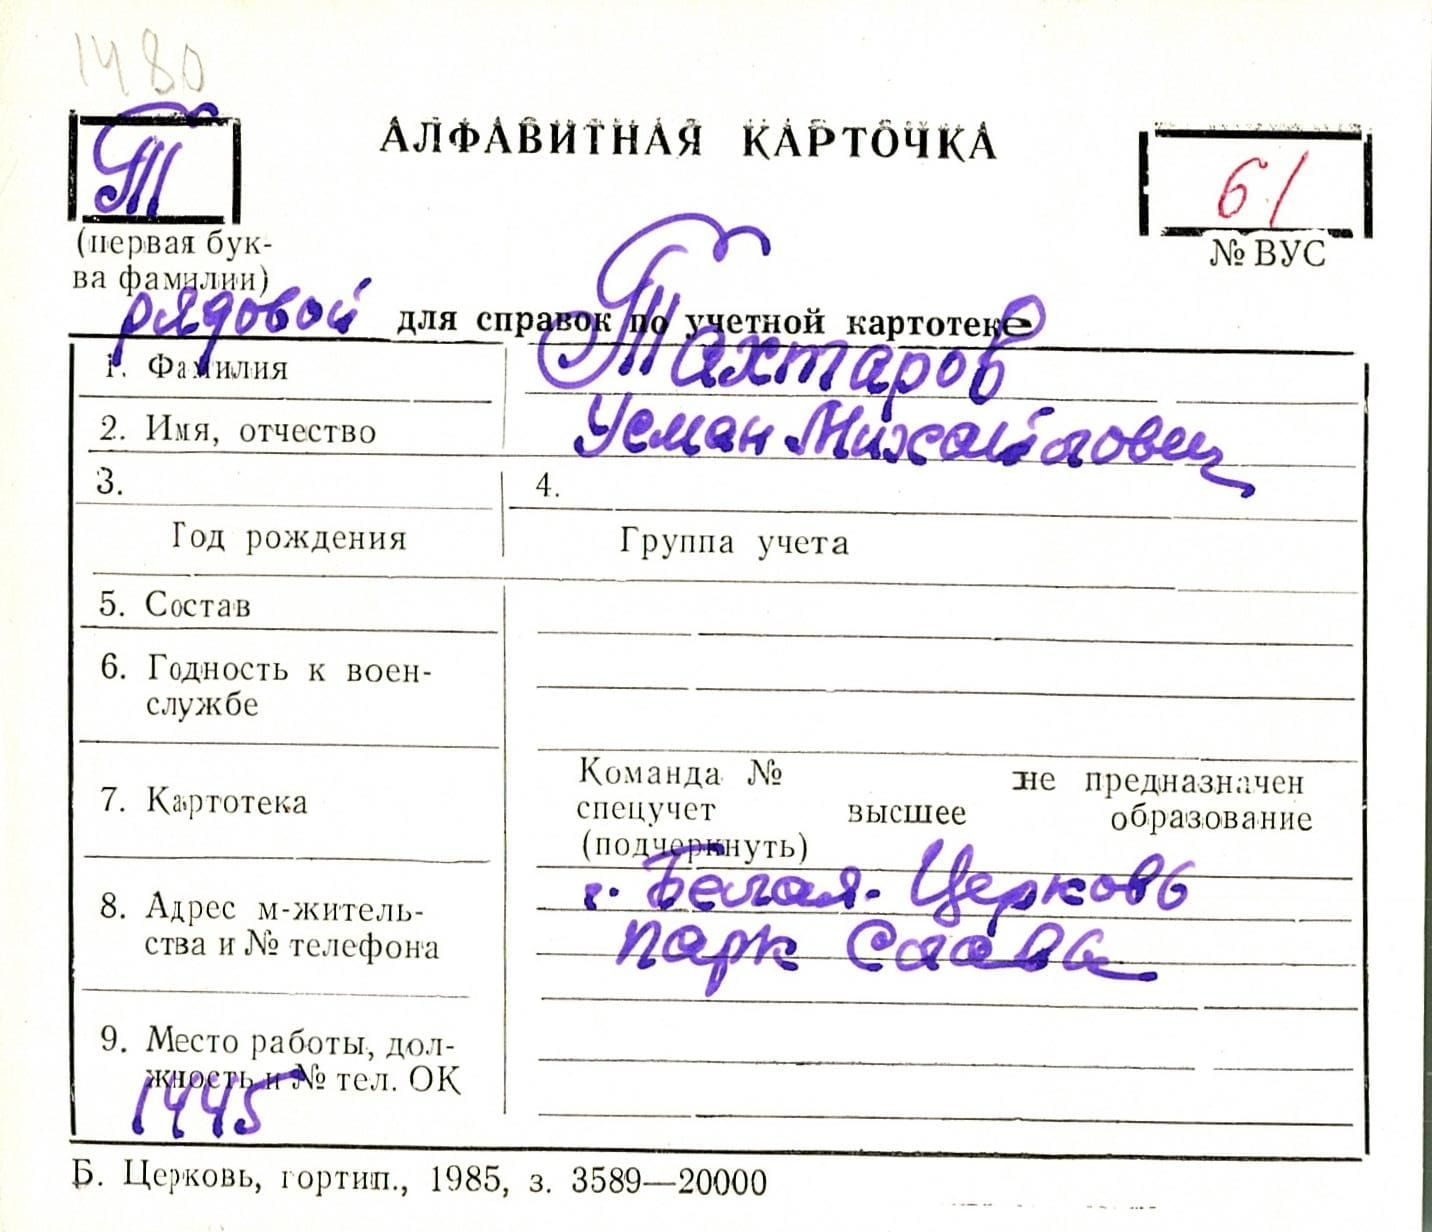 1480
Т
АЛФАВИТНАЯ КАРТОЧКА
61
(первая бук-
ва фамилии)
№ ВУС
рядовой
для справок по учетной картотеке
1. Фамилия
Тахтаров
2. Имя, отчество
Усман Михайлович
3.
4.
Год рождения
Группа учета
5. Состав
6. Годность к воен-
службе
7. Картотека
Команда № не предназначен
спецучет высшее образование
(подчеркнуть)
8. Адрес м-житель-
ства и № телефона
г. Белая-Церковь
парк
9. Место работы, дол-
жность и № тел. ОК
1445
Б. Церковь, гортип., 1985, з. 3589—20000